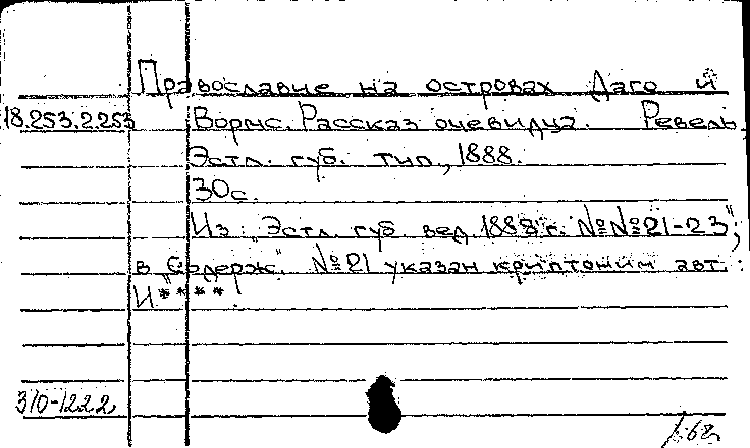 Православие на островах Даго и
18.253.2.253 Вормс. Рассказ очевидца. Ревель,
Эстл. губ. тип., 1888.
30с.
Из: "Эстл. губ. вед. 1888 г. №№21-23";
в "Содерж." №21 указан криптоним авт.:
И****.
310-1222